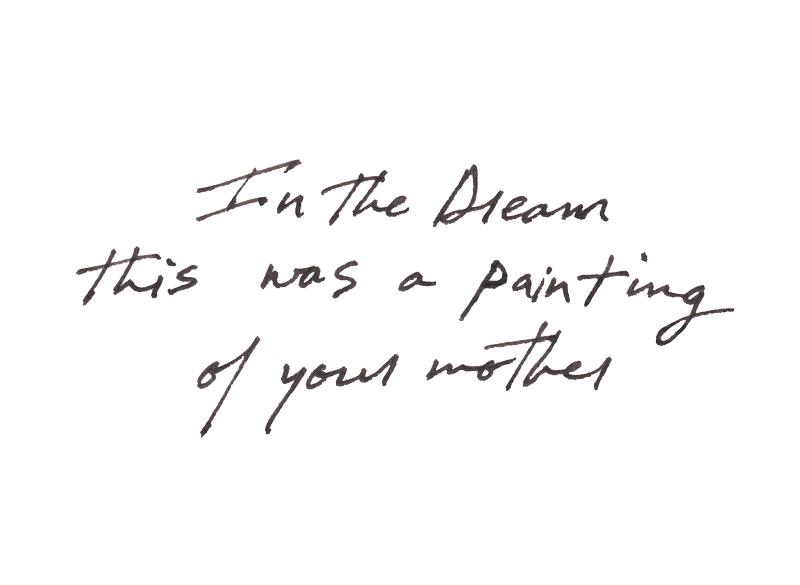 In The Dream
this was a painting
of your mother